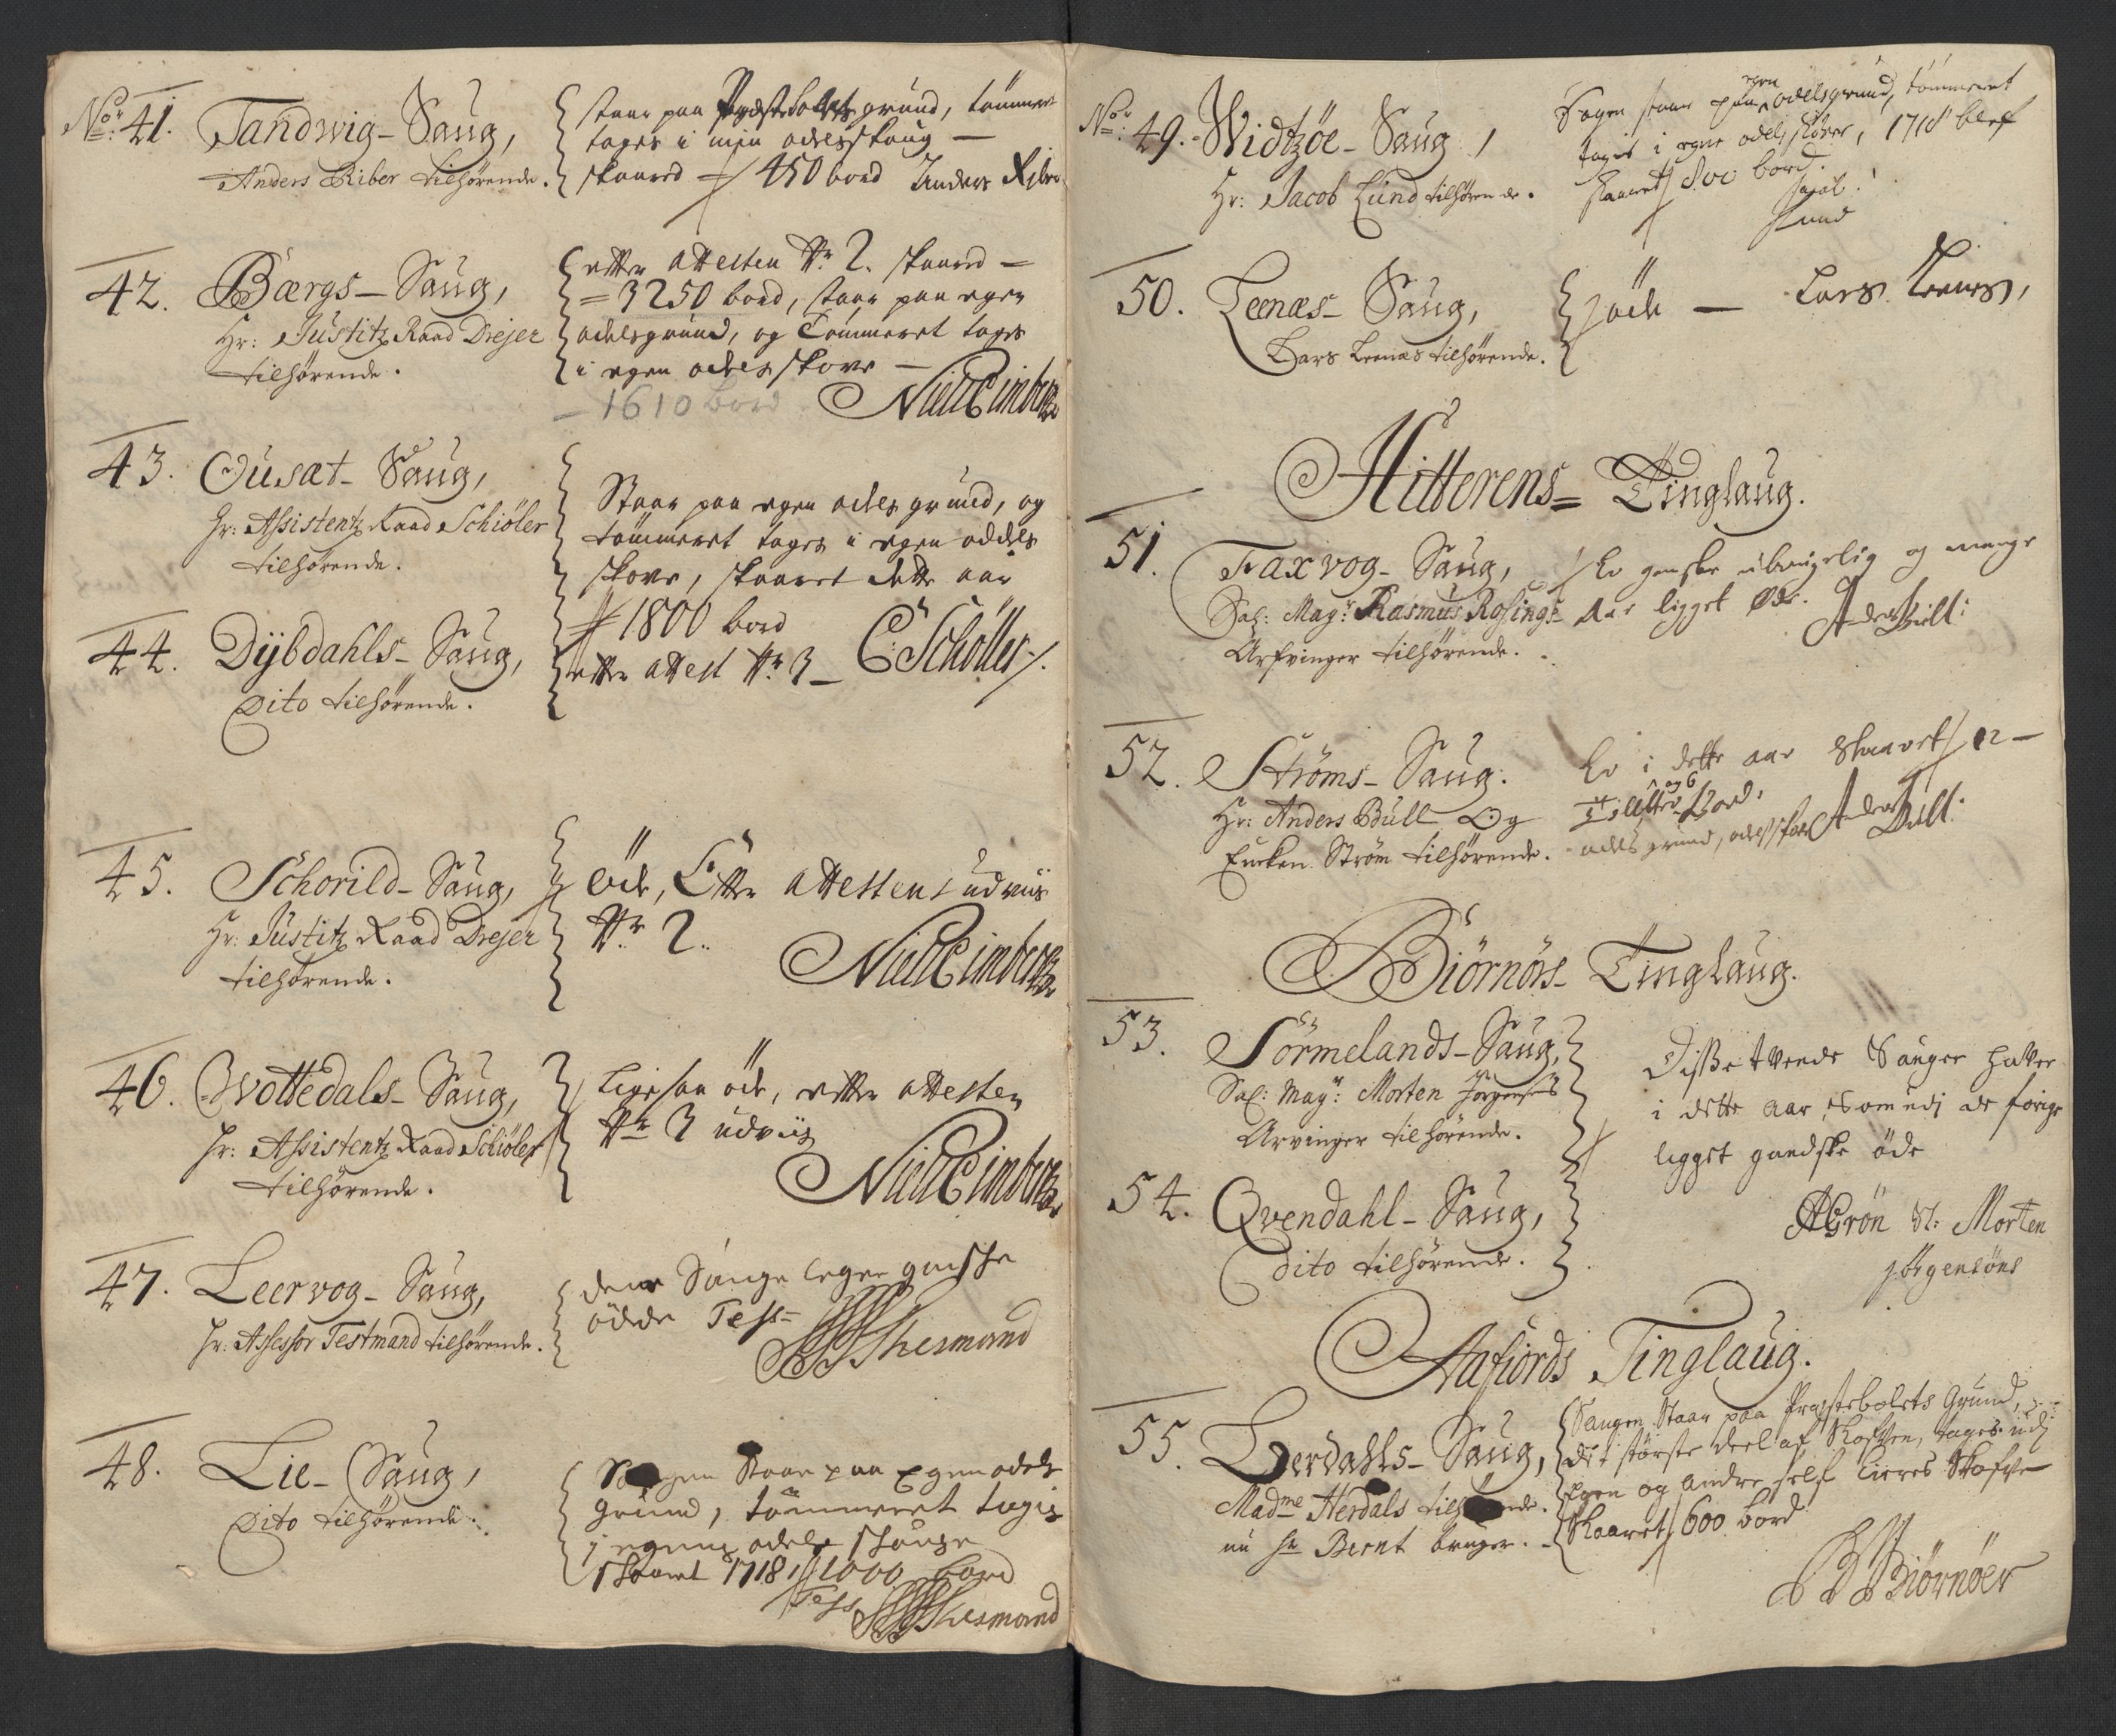 No: 41. Tandwig- Saug,
Anders Riber tilhørende.
staar paa Præstebolets grund, tømmeret
tages i min odelsskoug —
skaared — 450 bord Anders Riber
42. Bærgs- Saug,
Hr: Justitz Raad Drejer
tilhørende.
etter attesten No 2. skaared —
= 3250 bord, staar paa egen
odelsgrund, og Tømmeret tages
i egen odels skove —
— 1610 bord
43. Ousæt- Saug,
Hr: Assistentz Raad Schiøler
tilhørende.
Staar paa egen odels grund, og
tømmeret tages i egen oddels
skove, skaaret dette aar
1800 bord
44. Dÿbdahls- Saug,
Dito tilhørende.
etter attest No 3 — C: Schøller
45. Schorild- Saug,
Hr: Justitz Raad Drejer
tilhørende.
öde, Etter attestens udviis
No 2.
46. Qvottedals- Saug,
Hr: Assistentz Raad Schiøler
tilhørende.
Ligesaa öde, etter attesten
No 3 udviis
47. Leervog- Saug,
Hr: Assessor Testmand tilhørende.
denne Sauge leger gansche
ödde Tess-
Thesmand
48. Lie- Saug,
Dito tilhørende.
Saugen Staar paa Egen odels
grund, tömmeret tagis
j egene odels schouge
schaaret 1718, 1000 bord
Tess Thesmand
No: 49. Widtzöe- Saug,
Hr: Jacob Lund tilhørende.
Sagen staar paa egen odelsgrund, tömmeret
tages i egne odels skover, 1718 blef
skaaret 800 bord.
Jacob
Lund
50. Leenæs- Saug,
Lars Leenæs tilhørende.
öde — Lars Leenæs,
Hitterens- Tinglaug.
51. Faxvog- Saug,
Sal: Mag: Rasmus Rosings-
Arfvinger tilhørende.
Er ganske ubrugelig og mange
Aar ligget Øde. Anders Büll:
52. Ströms- Saug.
Hr: Anders Büll Og
Enken Ström tilhørende.
Er i dette aar skaaret 12 —
og 6
bord.
odels grund, odelsskov Anders Büll:
Biörnörs- Tinglaug.
53. Sörmelands- Saug,
Sal: Mag: Morten Jörgensens
Arvinger tilhørende.
Disse tvende Sauger haver
i dette aar, som udj de forige
ligget gandske öde
54. Qvendahl- Saug,
Dito tilhørende.
AGrön Sl: Morten
Jörgensöns
Aafiords Tinglaug.
55. Herdahls- Saug,
Madme Herdals tilhørende.
nu hr Bernt bruger.
Saugen Staar paa Præstebolets Grund,
det störste deel af Skofven, tages udj
Egen og andre self Eieres Skofve
Skaaret 600 bord
Biörnöer